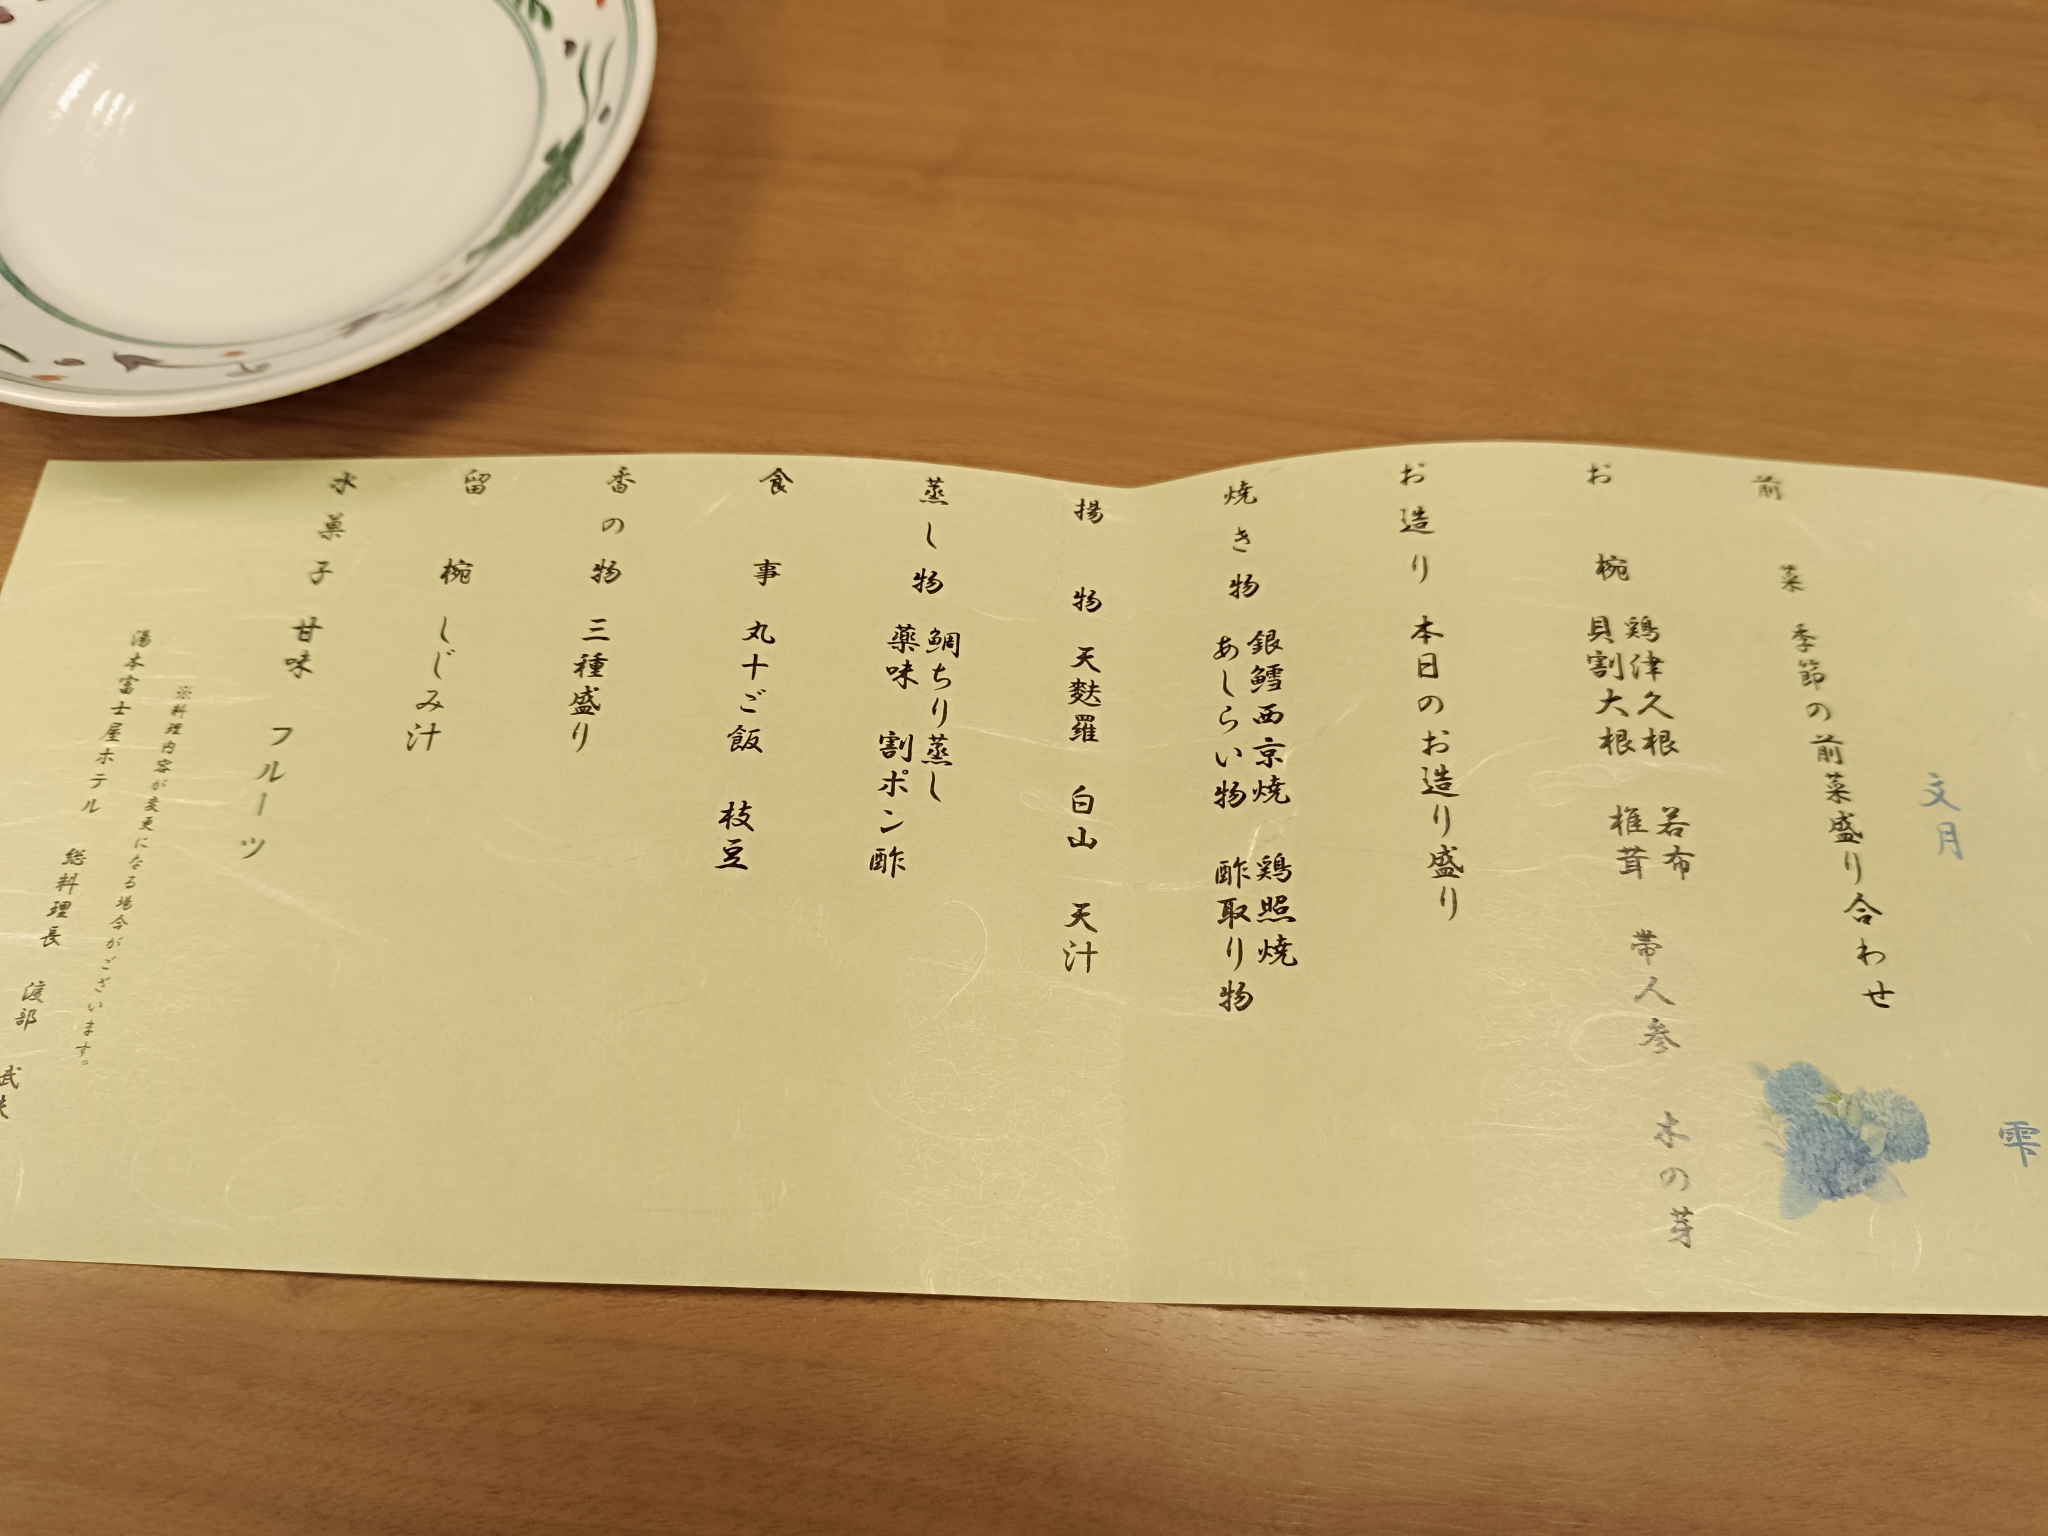 雫
文月
前菜 季節の前菜盛り合わせ
お椀 鶏津久根 若布 帯人参 木の芽
貝割大根 椎茸
お造り 本日のお造り盛り
焼き物 銀鱈西京焼 鶏照焼
あしらい物 酢取り物
揚物 天麩羅 白山 天汁
蒸し物 鯛ちり蒸し
薬味 割ポン酢
食事 丸十ご飯 枝豆
香の物 三種盛り
留椀 しじみ汁
水菓子 甘味 フルーツ
※料理内容が変更になる場合がございます。
湯本富士屋ホテル 総料理長 渡部 武